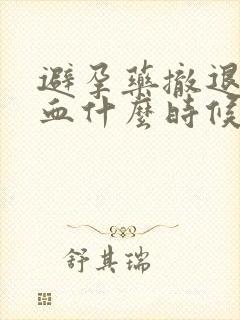 避孕藥撤退
血什麼時候
舒其瑞